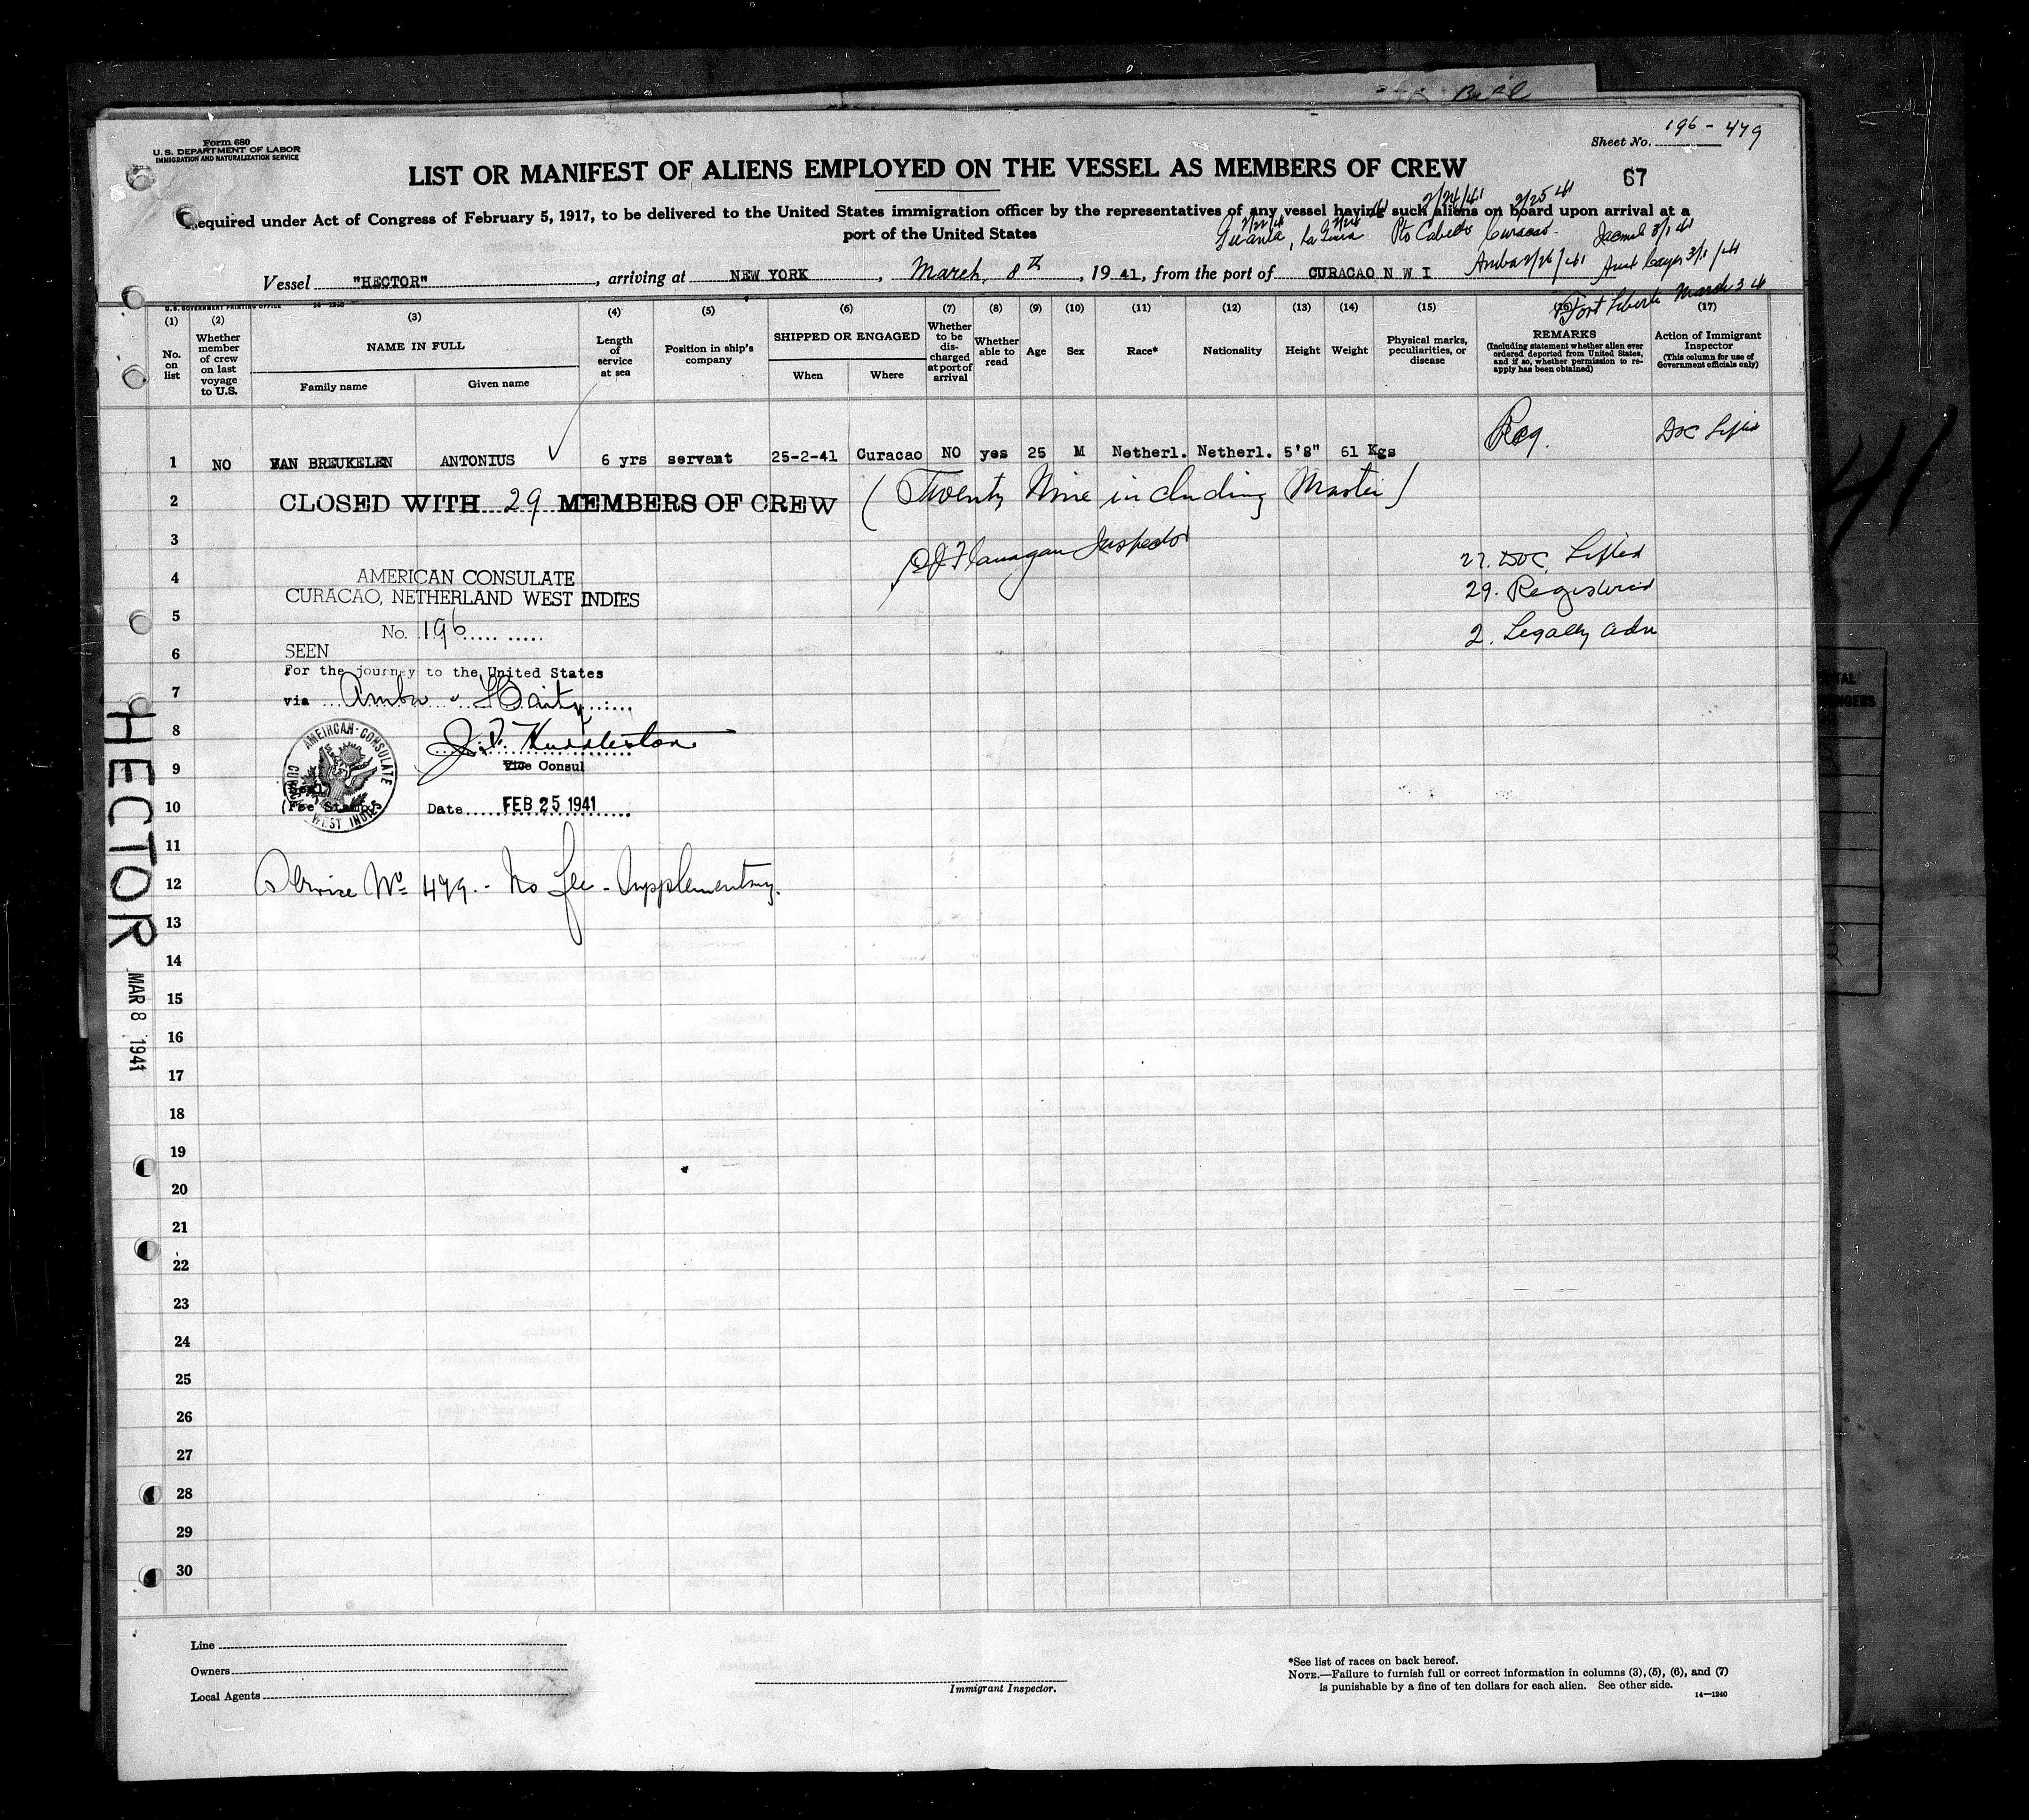 Form 680
U.S. DEPARTMENT OF LABOR
IMMIGRATION AND NATURALIZATION SERVICE
Sheet No. 196 - 479
LIST OR MANIFEST OF ALIENS EMPLOYED ON THE VESSEL AS MEMBERS OF CREW
67
2/24/41 2/25 41
Required under Act of Congress of February 5, 1917, to be delivered to the United States immigration officer by the representatives of any vessel having such aliens on board upon arrival at a
port of the United States
Guanta, La Guira Pto Cabello Curacao. Jacmel 3/1 41
Vessel "HECTOR", arriving at NEW YORK, March, 8th, 19 41, from the port of CURACAO N W I Aruba 2/26/41 Aux Cayes 3/1/41
Fort Liberte March 3 41
U.S. GOVERNMENT PRINTING OFFICE 14-1240
(1) (2) (3) (4) (5) (6) (7) (8) (9) (10) (11) (12) (13) (14) (15) (16) (17)
No. on list
Whether member of crew on last voyage to U.S.
NAME IN FULL
Family name Given name
Length of service at sea
Position in ship's company
SHIPPED OR ENGAGED
When Where
Whether to be discharged at port of arrival
Whether able to read
Age
Sex
Race*
Nationality
Height
Weight
Physical marks, peculiarities, or disease
REMARKS
(Including statement whether alien ever ordered deported from United States, and if so, whether permission to re-apply has been obtained)
Action of Immigrant Inspector
(This column for use of Government officials only)
1 NO VAN BREUKELEN ANTONIUS 6 yrs servant 25-2-41 Curacao NO yes 25 M Netherl. Netherl. 5'8" 61 Kgs Reg. Doc Lifted
2 CLOSED WITH 29 MEMBERS OF CREW (Twenty Nine including Master)
3 Flanagan Inspector
27. Doc. Lifted
4 AMERICAN CONSULATE
29. Registered
CURACAO, NETHERLAND WEST INDIES
5
No. 196
2. Legally adm
6 SEEN
For the journey to the United States
7 via Aruba Haity
8
AMERICAN CONSULATE CURACAO WEST INDIES
9 Vice Consul
(Seal)
10 (Fee Stamp) Date FEB 25 1941
11
12 Service No 479. - No fee - Supplementary.
13
14
15
16
17
18
19
20
21
22
23
24
25
26
27
28
29
30
HECTOR
MAR 8 1941
41
Line
Owners
Local Agents
Immigrant Inspector.
*See list of races on back hereof.
NOTE.—Failure to furnish full or correct information in columns (3), (5), (6), and (7)
is punishable by a fine of ten dollars for each alien. See other side.
14—1240